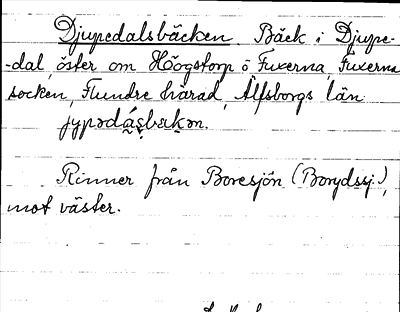 Djupedalsbäcken. Bäck i Djupe-
-dal, öster om Högstorp ö Fuxerna, Fuxerna
socken, Flundre härad, Älfsborgs län
Rinner från Boresjön (Borydssj.),
mot väster.